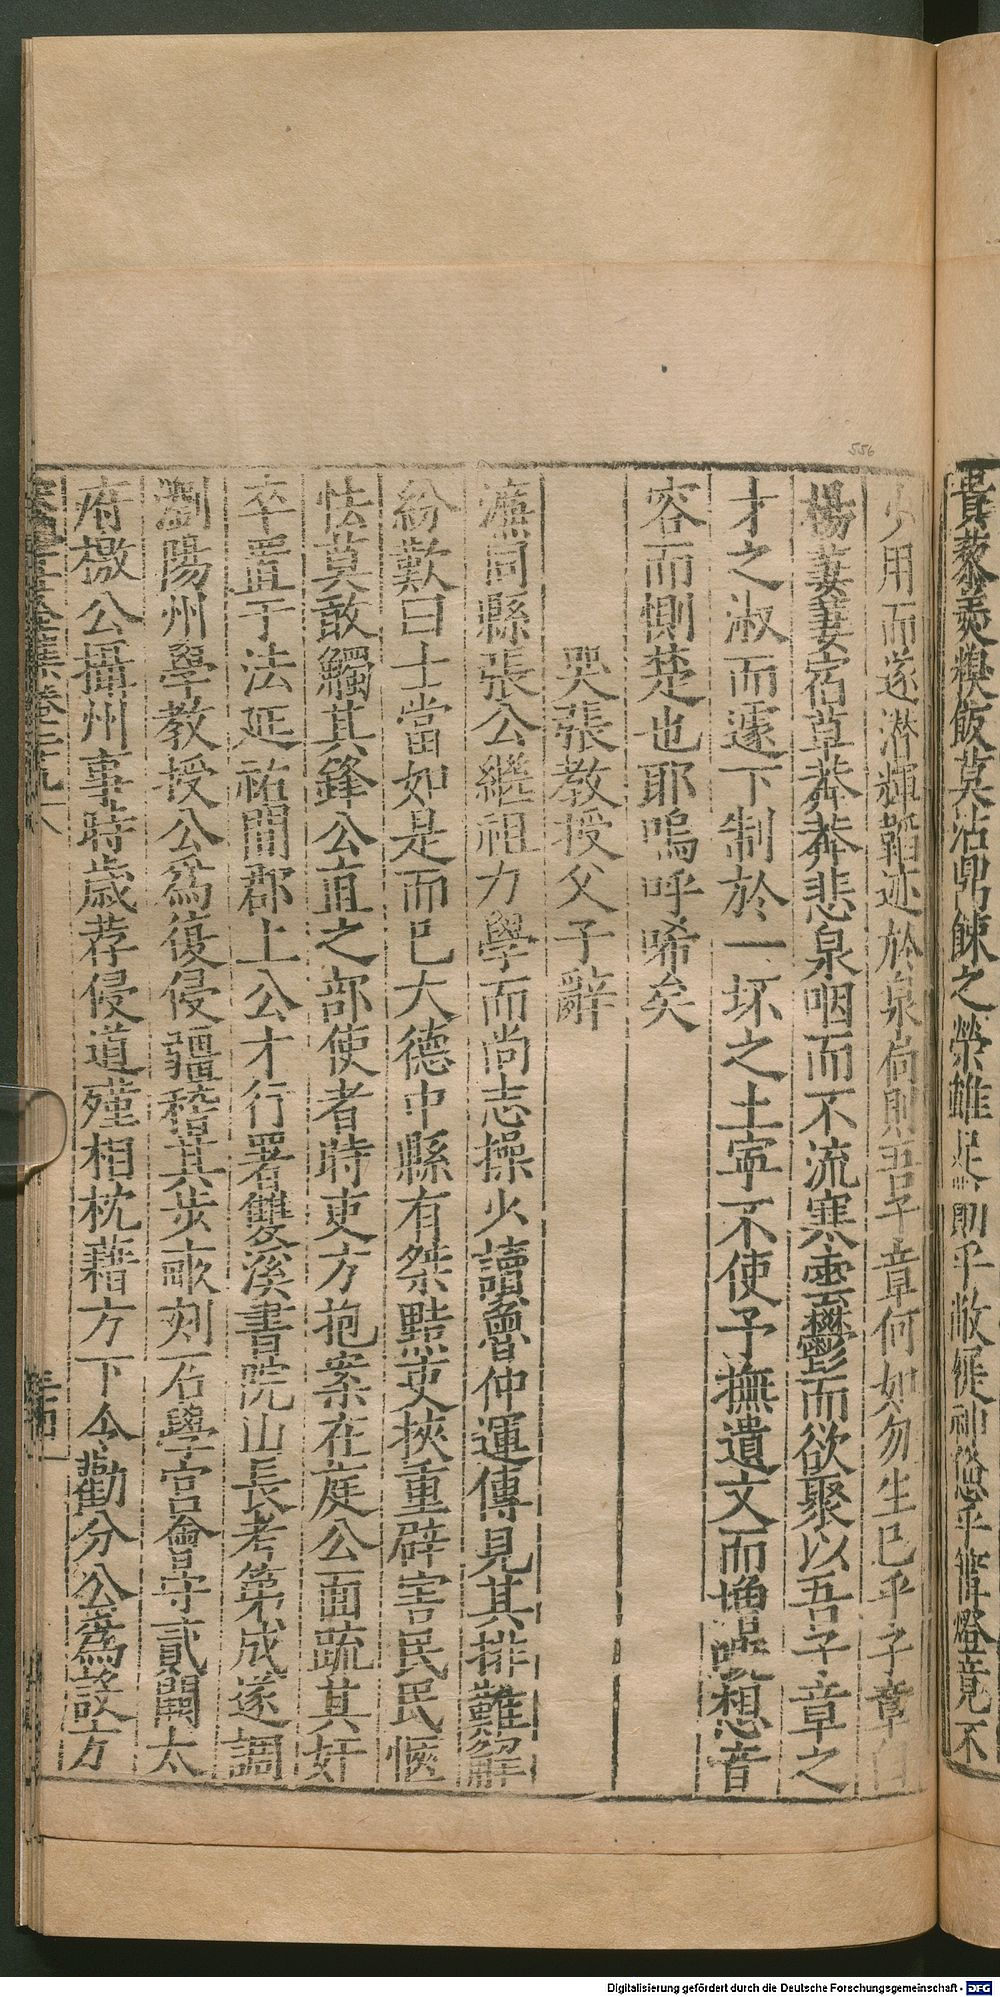 貴藜羹糗飯莫沾鼎餗之榮雄　　則乎敝　神　乎篝燈竟不
少用而遂潜輝韜迹於泉尚則吾子章何如勿生已乎子章白
楊萋萋宿草莽莽悲泉咽而不流寒雲鬱而欲聚以吾子章之
才之淑而遽下制於一坏之土寧不使予撫遺文而增　想音
容而惻楚也耶嗚呼唏矣
哭張教授父子辭
濂同縣張公繼祖力學而尚志操少讀魯仲連傳見其排難解
紛歎曰士當如是而已大德中縣有桀黠吏挾重辟害民民愜
怯莫敢觸其鋒公直之部使者時吏方抱案在庭公面疏其奸
卒置于法延祐間郡上公才行署雙溪書院山長考第成遂調
瀏陽州學教授公爲復侵疆稽其步畝刻石學宫會守貳闕太
府檄公攝州事時歲荐侵道殣相枕藉方下令勸分公爲設方
556
Digitalisierung gefördert durch die Deutsche Forschungsgemeinschaft - DFG